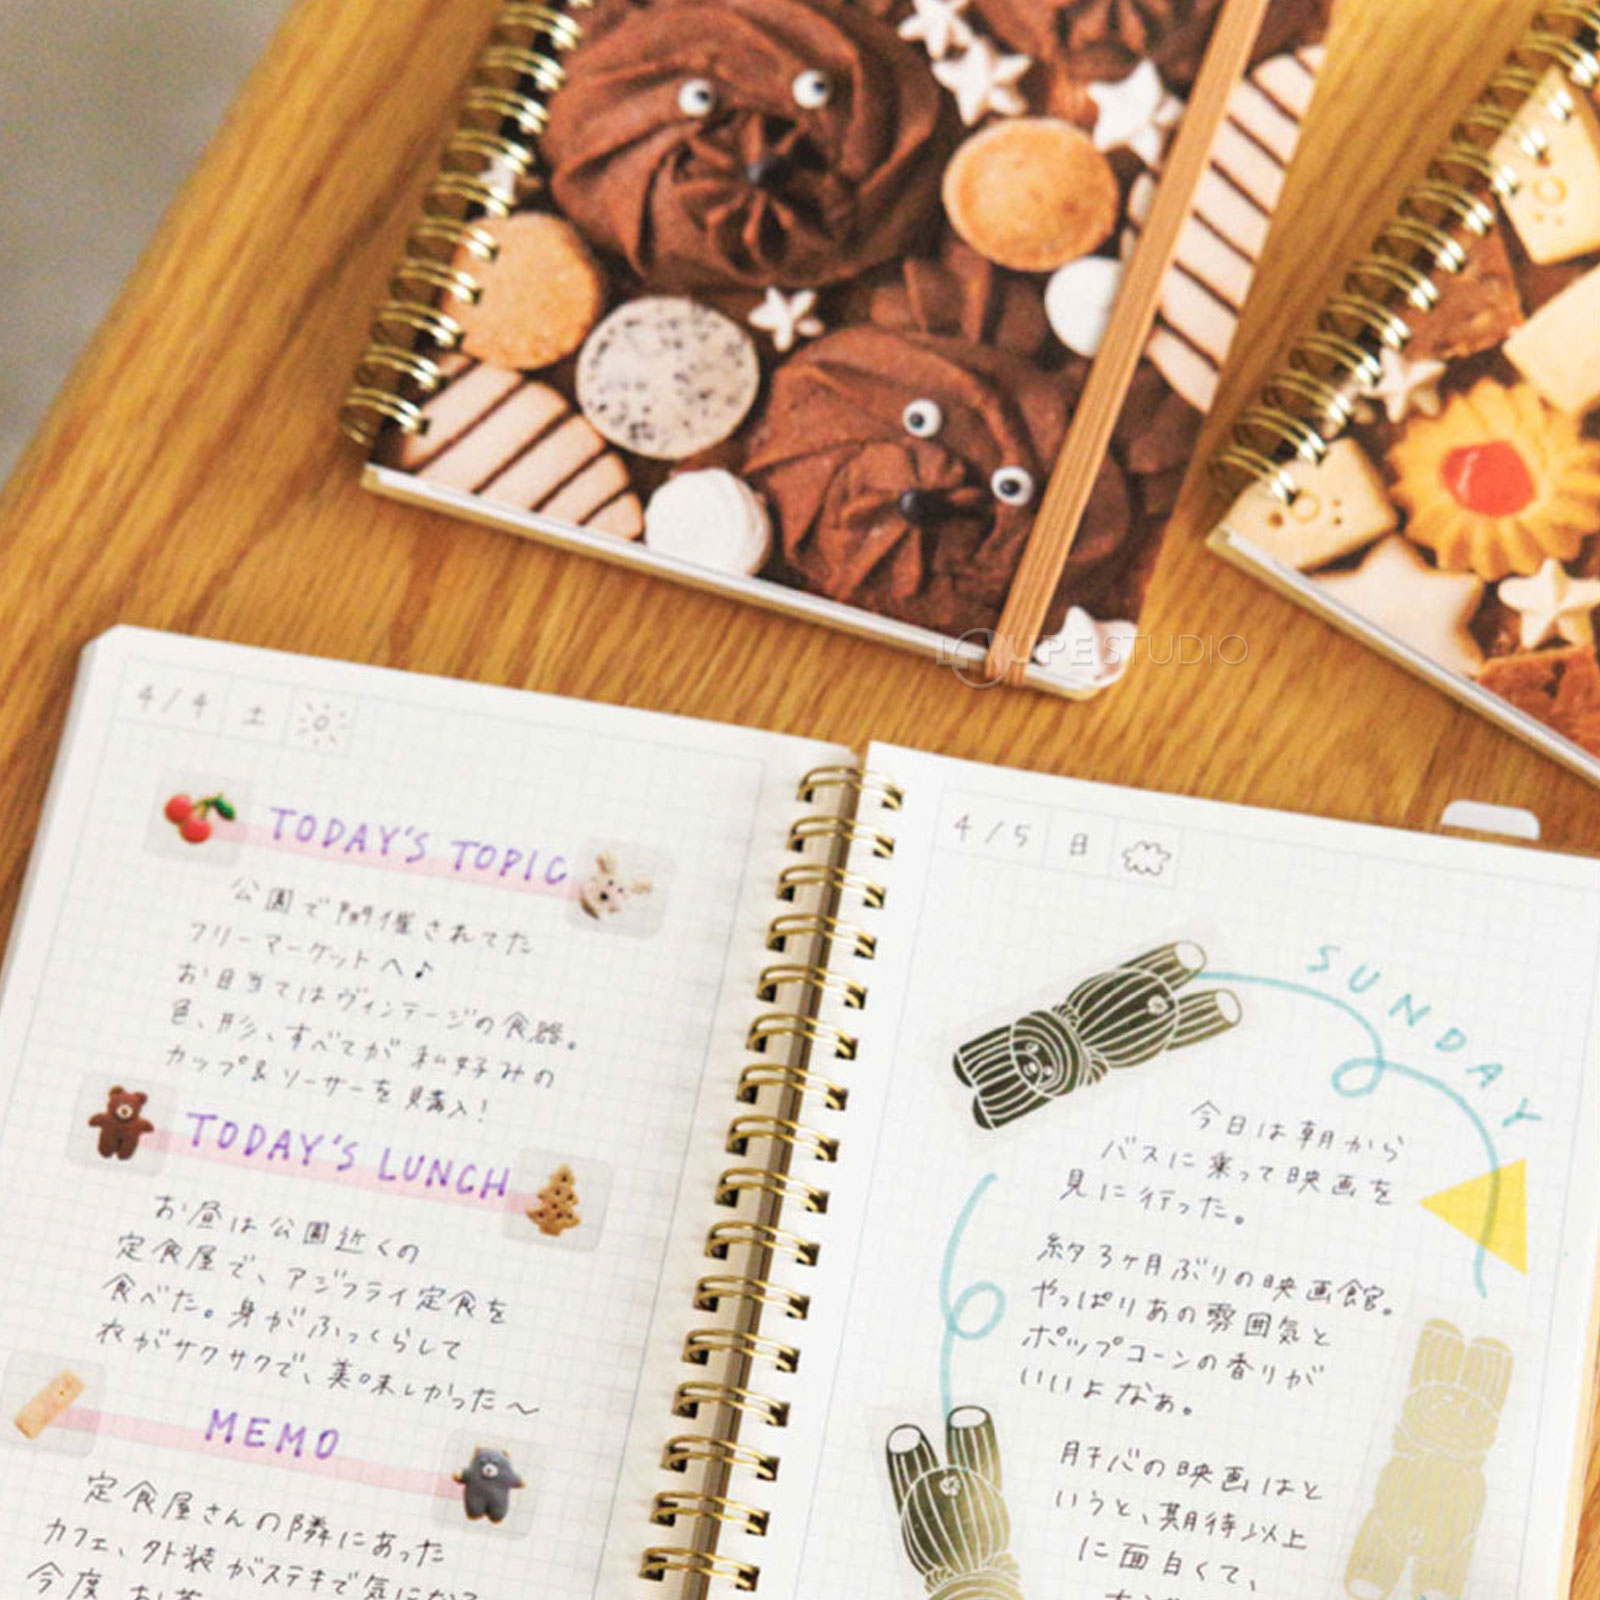 LOUPE STUDIO
4/4 土
TODAY'S TOPIC
公園で開催されてた
フリーマーケットへ♪
お目当てはヴィンテージの食器。
色、形、すべてが私好みの
カップ&ソーサーを購入!
TODAY'S LUNCH
お昼は公園近くの
定食屋で、アジフライ定食を
食べた。身がふっくらして
衣がサクサクで、美味しかった〜
MEMO
定食屋さんの隣にあった
カフェ、外装がステキで気になる
今度
4/5 日
SUNDAY
今日は朝から
バスに乗って映画を
見に行った。
約3ヶ月ぶりの映画館。
やっぱりあの雰囲気と
ポップコーンの香りが
いいよなぁ。
肝心の映画はと
いうと、期待以上
に面白くて、